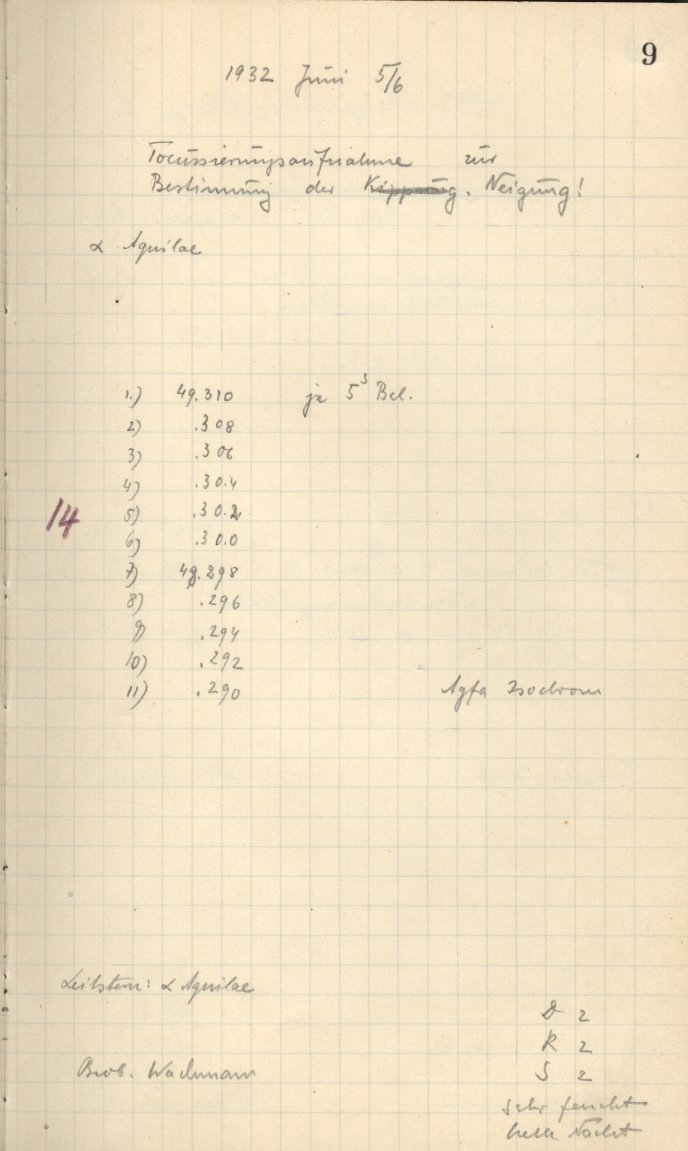 9
1932 Juni 5/6
Focussierungsaufnahme zur
Bestimmung der Kippung. Neigung!
α Aquilae
1.) 49.310 je 5³ Bel.
2) .308
3) .306
4) .304
14
5) .302
6) .300
7) 49.298
8) .296
9) .294
10) .292
11) .290 Agfa Isochrom
Leitstern: α Aquilae
D 2
R 2
Beob. Wachmann S 2
sehr feucht
helle Nacht